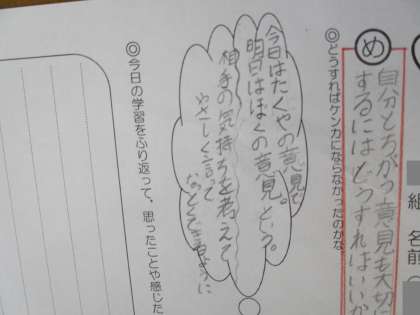 め
自分とちがう意見も大切に
するにはどうすればいいか
組 名前
◎どうすればケンカにならなかったのかな。
今日はたくやの意見で
明日はぼくの意見という。
相手の気持ちを考えて
やさしく言って
なっとくできるように
◎今日の学習をふり返って、思ったことや感じた